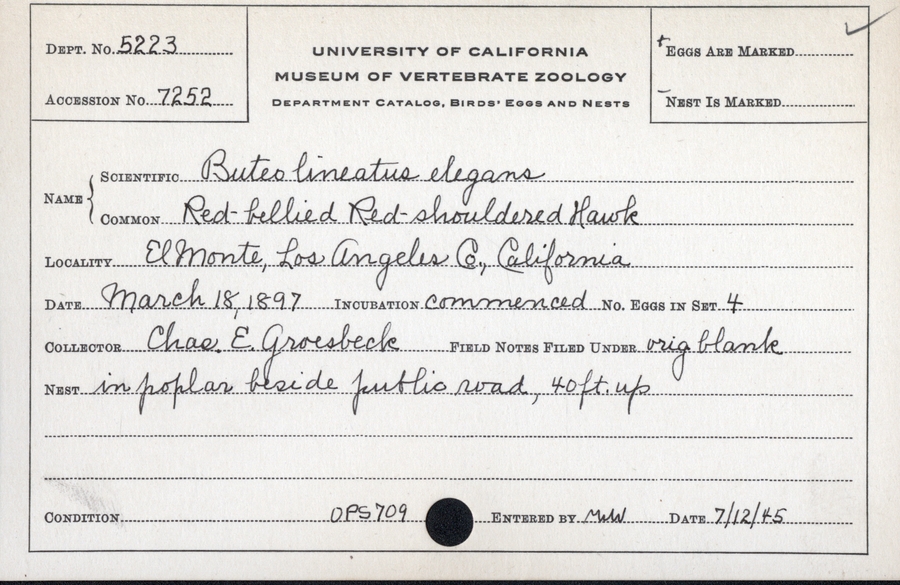 DEPT. NO. 5223
ACCESSION NO. 7252
UNIVERSITY OF CALIFORNIA
MUSEUM OF VERTEBRATE ZOOLOGY
DEPARTMENT CATALOG, BIRDS' EGGS AND NESTS
+ EGGS ARE MARKED
- NEST IS MARKED
NAME { SCIENTIFIC Buteo lineatus elegans
COMMON Red-bellied Red-shouldered Hawk
LOCALITY El Monte, Los Angeles Co., California
DATE March 18, 1897 INCUBATION commenced NO. EGGS IN SET 4
COLLECTOR Chas. E. Groesbeck FIELD NOTES FILED UNDER orig blank
NEST in poplar beside public road, 40 ft. up
CONDITION OPS 709 ENTERED BY DATE 7/12/45